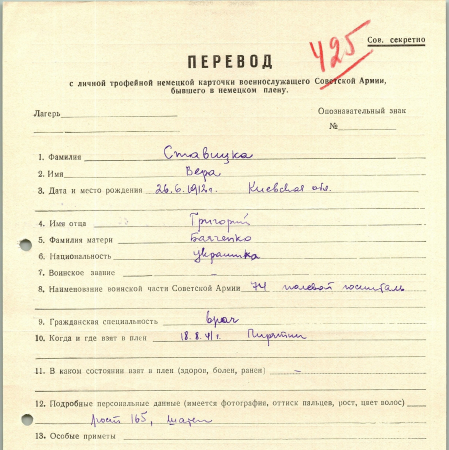 425
Сов. секретно
ПЕРЕВОД
с личной трофейной немецкой карточки военнослужащего Советской Армии,
бывшего в немецком плену.
Лагерь
Опознавательный знак
№
1. Фамилия Ставицка
2. Имя Вера
3. Дата и место рождения 26.6.1912г. Киевская обл.
4. Имя отца Григорий
5. Фамилия матери
6. Национальность украинка
7. Воинское звание –
8. Наименование воинской части Советской Армии 74 полевой госпиталь
9. Гражданская специальность врач
10. Когда и где взят в плен 18.8.41г. Пирятин
11. В каком состоянии взят в плен (здоров, болен, ранен) –
12. Подробные персональные данные (имеется фотография, оттиск пальцев, рост, цвет волос)
рост 165,
13. Особые приметы